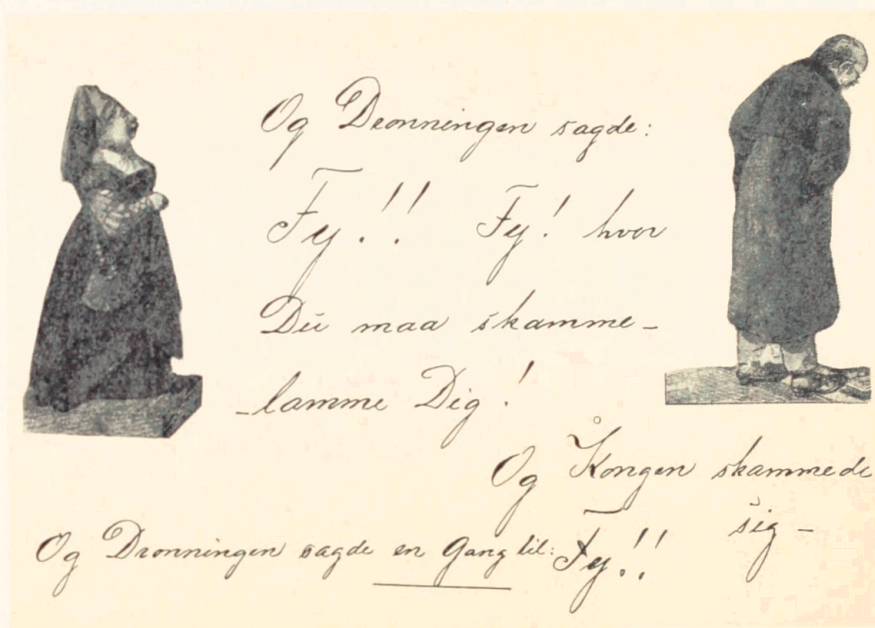 Og Dronningen sagde:
Fy!! Fy! hvor
Du maa skamme-
-lamme Dig!
Og Kongen skammede
sig-
Og Dronningen sagde en Gang til: Fy!!